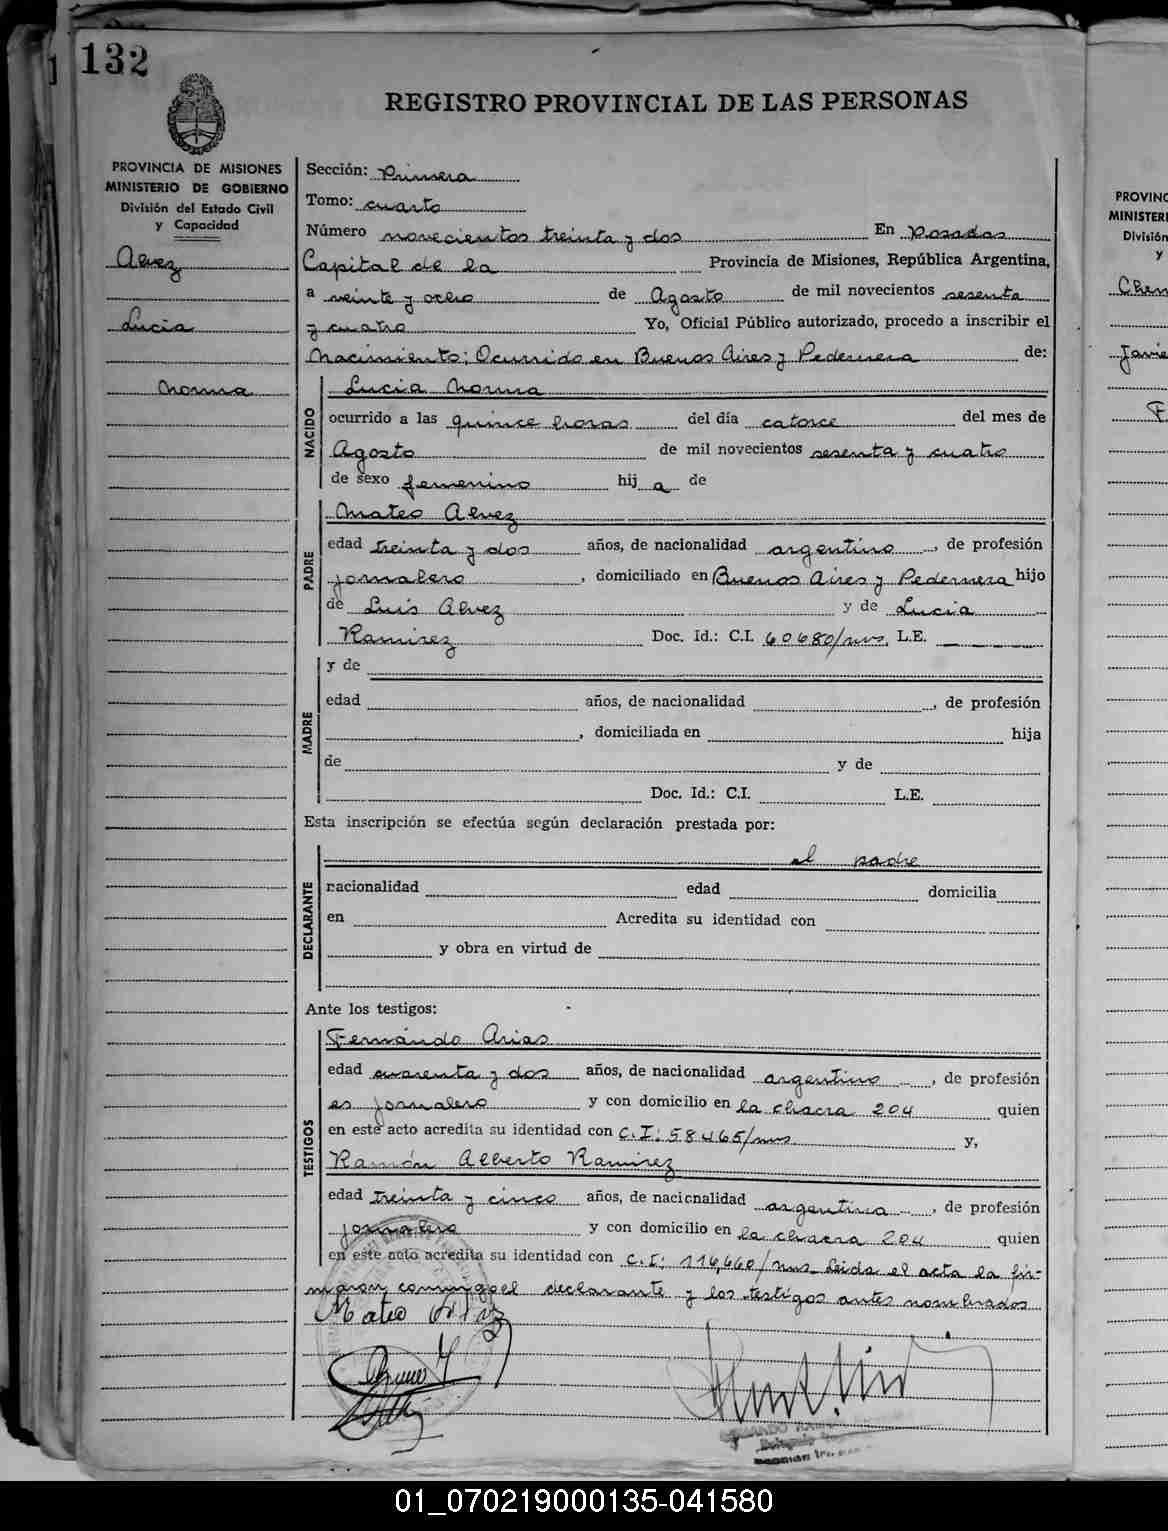 132
REGISTRO PROVINCIAL DE LAS PERSONAS
PROVINCIA DE MISIONES
MINISTERIO DE GOBIERNO
División del Estado Civil
y Capacidad
Alvez
Lucia
Norma
Sección: Primera
Tomo: cuarto
Número novecientos treinta y dos En Posadas
Capital de la Provincia de Misiones, República Argentina,
a veinte y ocho de Agosto de mil novecientos sesenta
y cuatro Yo, Oficial Público autorizado, procedo a inscribir el
Nacimiento: Ocurrido en Buenos Aires y Pedernera de:
NACIDO
Lucia Norma
ocurrido a las quince horas del día catorce del mes de
Agosto de mil novecientos sesenta y cuatro
de sexo femenino hij a de
PADRE
Mateo Alvez
edad treinta y dos años, de nacionalidad argentino, de profesión
jornalero, domiciliado en Buenos Aires y Pedernera hijo
de Luis Alvez y de Lucia
Ramirez Doc. Id.: C.I. 60680/mns. L.E.
MADRE
y de
edad años, de nacionalidad , de profesión
, domiciliada en hija
de y de
Doc. Id.: C.I. L.E.
Esta inscripción se efectúa según declaración prestada por:
DECLARANTE
el padre
nacionalidad edad domicilia
en Acredita su identidad con
y obra en virtud de
Ante los testigos:
TESTIGOS
Fernándo Arias
edad cuarenta y dos años, de nacionalidad argentino, de profesión
es jornalero y con domicilio en la chacra 204 quien
en este acto acredita su identidad con C.I: 58465/mns y,
Ramón Alberto Ramirez
edad treinta y cinco años, de nacionalidad argentina, de profesión
jornalero y con domicilio en la chacra 204 quien
en este acto acredita su identidad con C.I: 116,660/mns. Leida el acta la fir-
maron conmigo el declarante y los testigos antes nombrados
Mateo
PROVINC
MINISTERI
División
y
Javie
01_070219000135-041580